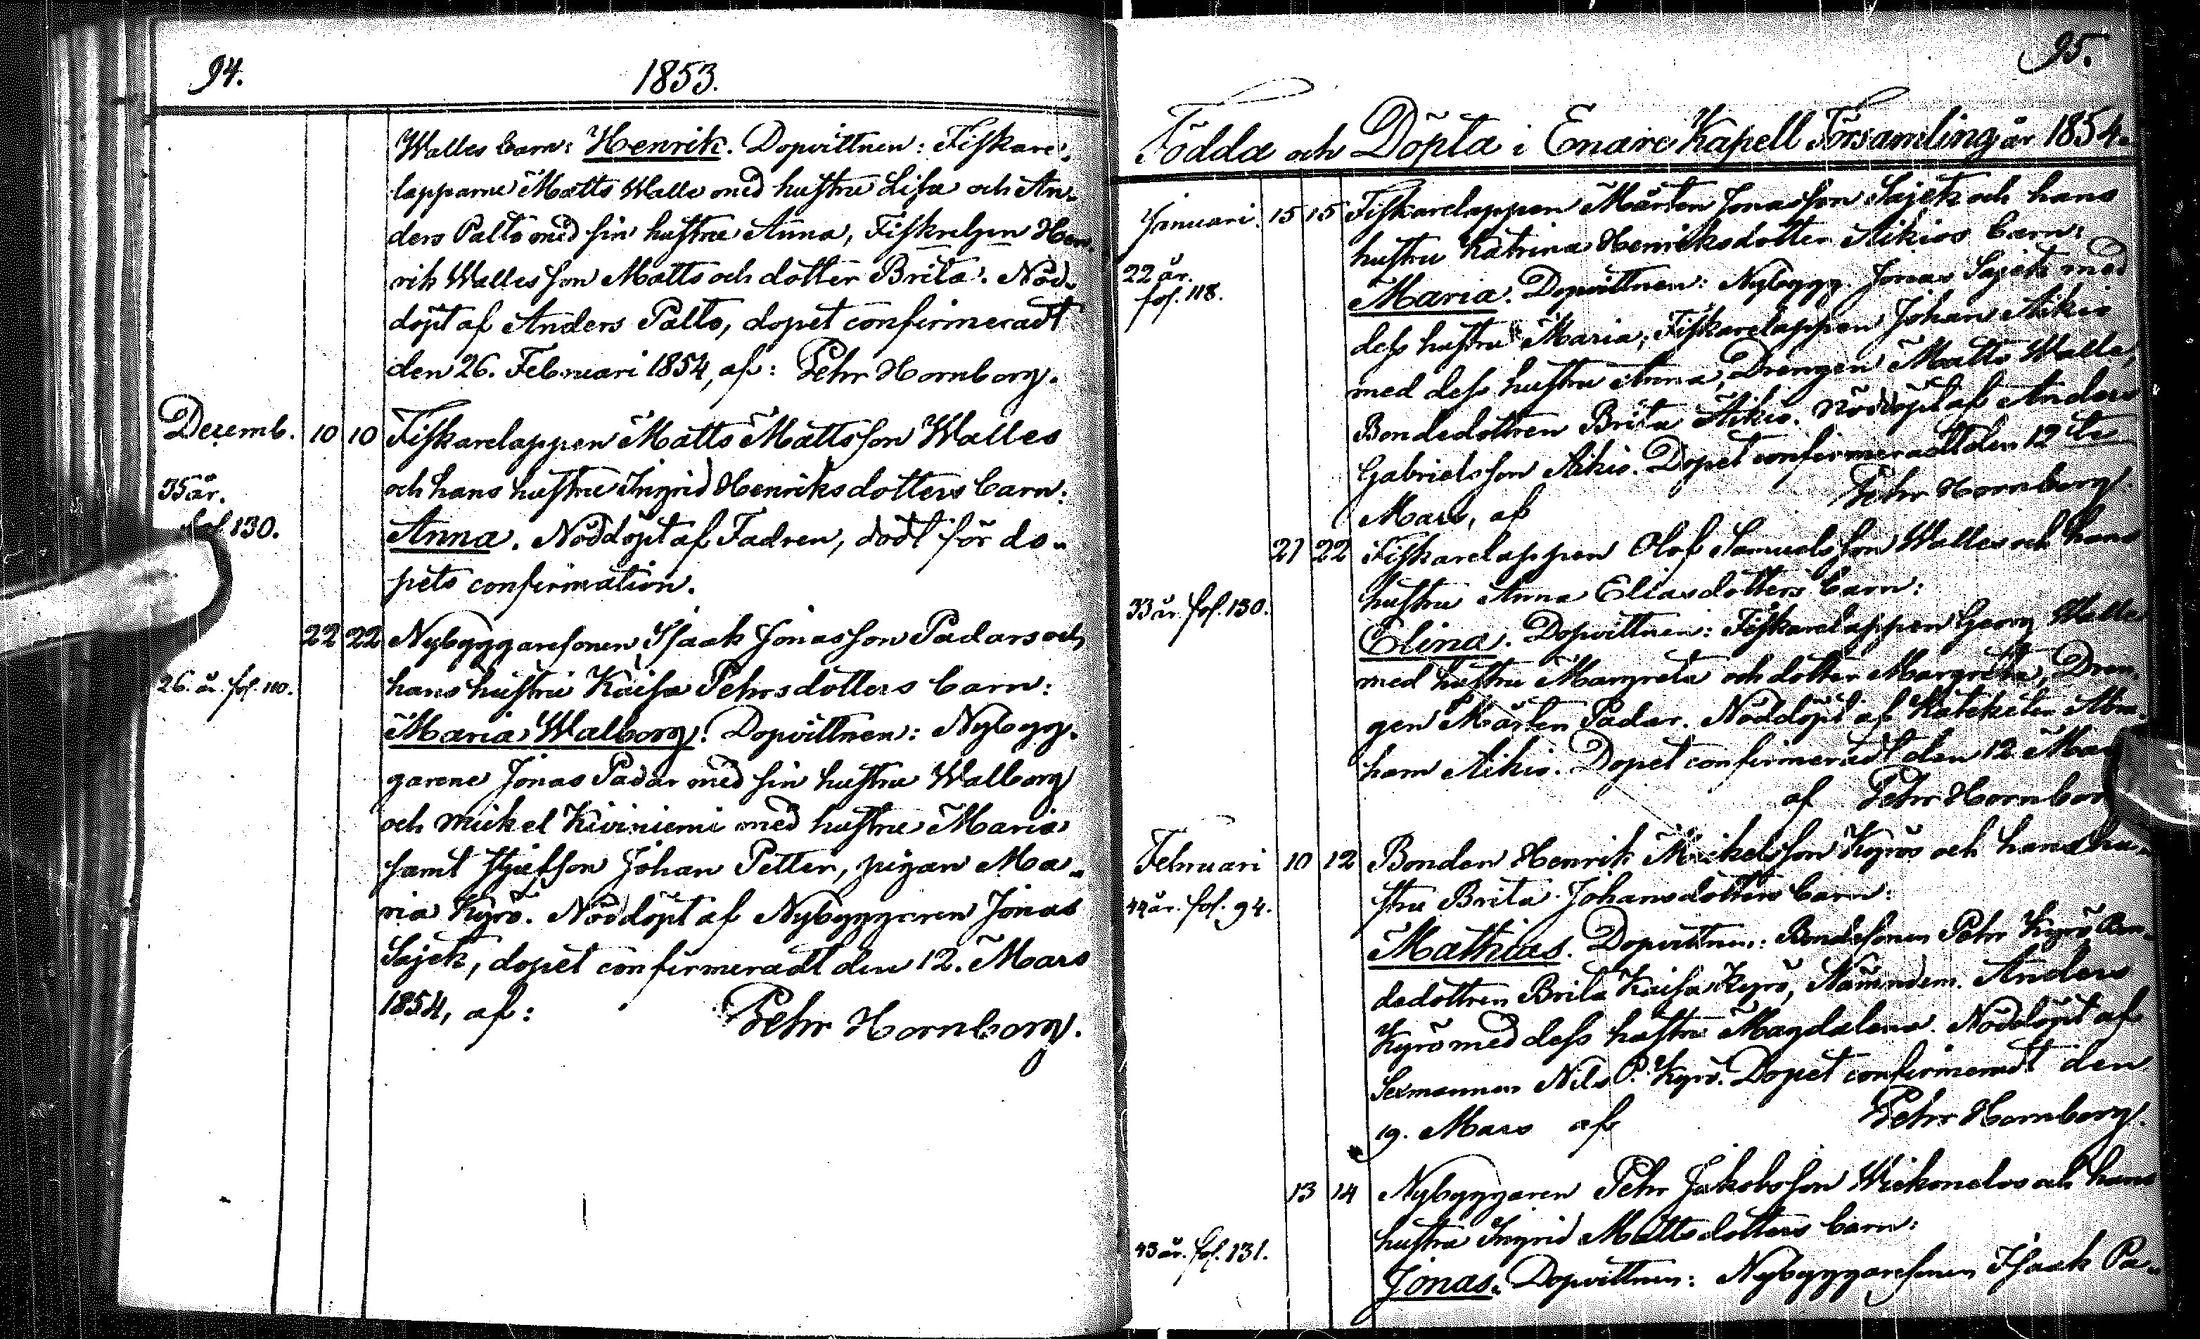 94.
1853.
Walles barn: Henrik. Dopvittnen: Fiskare-
lapparne Matts Walle med hustru Lisa och An-
ders Palto med sin hustru Anna, Fiskrelpn Hen-
rik Walles son Matts och dotter Brita. Nöd-
döpt af Anders Palto, dopet confirmeradt
den 26. Februari 1854, af: Pehr Hornborg.
Decemb. 10 10 Fiskarelappen Matts Mattsson Walles
35 år. och hans hustru Ingrid Henriksdotters barn:
fol. 130. Anna. Nöddöpt af Fadren, dödt för do-
pets confirmation.
22 22 Nybyggaresonen Isaak Jonasson Padars och
26. år. fol. 110. hans hustru Kaisa Pehrsdotters barn:
Maria Walborg. Dopvittnen: Nybyg-
garene Jonas Padar med sin hustru Walborg
och Mickel Kiviniemi med hustru Maria
samt stjufson Johan Petter, pigan Ma-
ria Kyrö. Nöddöpt af Nybyggaren Jonas
Sajek, dopet confirmeradt den 12. Mars
1854, af: Pehr Hornborg.
95.
Födda och Döpta i Enare Kapell Församling år 1854.
Januari. 15 15 Fiskarelappen Mårten Jonasson Sajek och hans
hustru Katrina Henriksdotter Aikios barn:
22 år. Maria. Dopvittnen: Nybygg. Jonas Sajek med
fol. 118. dess hustru Maria, Fiskarelappen Johan Aikio
med dess hustru Anna, Drengen Matts Walle,
Bondedottren Brita Aikio. Nöddöpt af Anders
Gabrielsson Aikio. Dopet confirmeradt den 12te
Mars, af Pehr Hornborg.
21 22 Fiskarelappen Olof Samuelsson Walles och hans
33 år. fol. 130. hustru Anna Eliasdotters barn:
Elina. Dopvittnen: Fiskarelappen Georg Walle
med hustru Margreta och dotter Margreta, Dren-
gen Mårten Padar. Nöddöpt af Kateketen Abra-
ham Aikio. Dopet confirmeradt den 12 Mars
af Pehr Hornborg
Februari 10 12 Bonden Henrik Mickelsson Kyrös och hans hu-
44 år. fol. 94. stru Brita Johansdotters barn:
Mathias. Dopvittnen: Bondesonen Pehr Kyrö, Bon-
dedottren Brita Kaisa Kyrö, Nämndem. Anders
Kyrö med dess hustru Magdalena. Nöddöpt af
Sexmannen Nils P. Kyrö. Dopet confirmeradt den
19. Mars af Pehr Hornborg.
13 14 Nybyggaren Pehr Jakobsson och hans
43 år. fol. 131. hustru Ingrid Mattsdotters barn:
Jonas. Dopvittnen: Nybyggaresonen Isaak Pa-